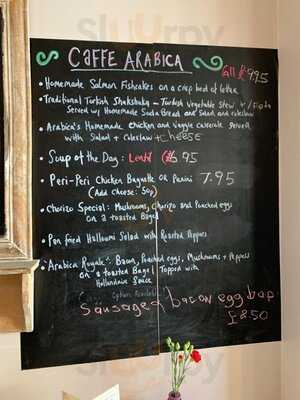 CAFFE ARABICA
All £9.95
• Homemade Salmon Fishcakes on a crisp bed of lettuce
• Traditional Turkish Shakshuka - Turkish Vegetable Stew + / Feta
Served w/ Homemade Soda Bread and Salad and coleslaw
• Arabica's Homemade chicken and veggie casserole served
with Salad + Coleslaw + CHEESE
• Soup of the Day: Lentil £6.95
• Peri-Peri Chicken Baguette or Panini 7.95
(Add Cheese: 50p)
• Chorizo Special: Mushrooms, Chorizo and Poached eggs
on a toasted Bagel
• Pan fried Halloumi Salad with Roasted Peppers
• Arabica Royale: Bacon, Poached eggs, Mushrooms + Peppers
on a toasted Bagel Topped with
Hollandaise Sauce
Options Available
Sausage & bacon egg bap
£8.50
sluurpy